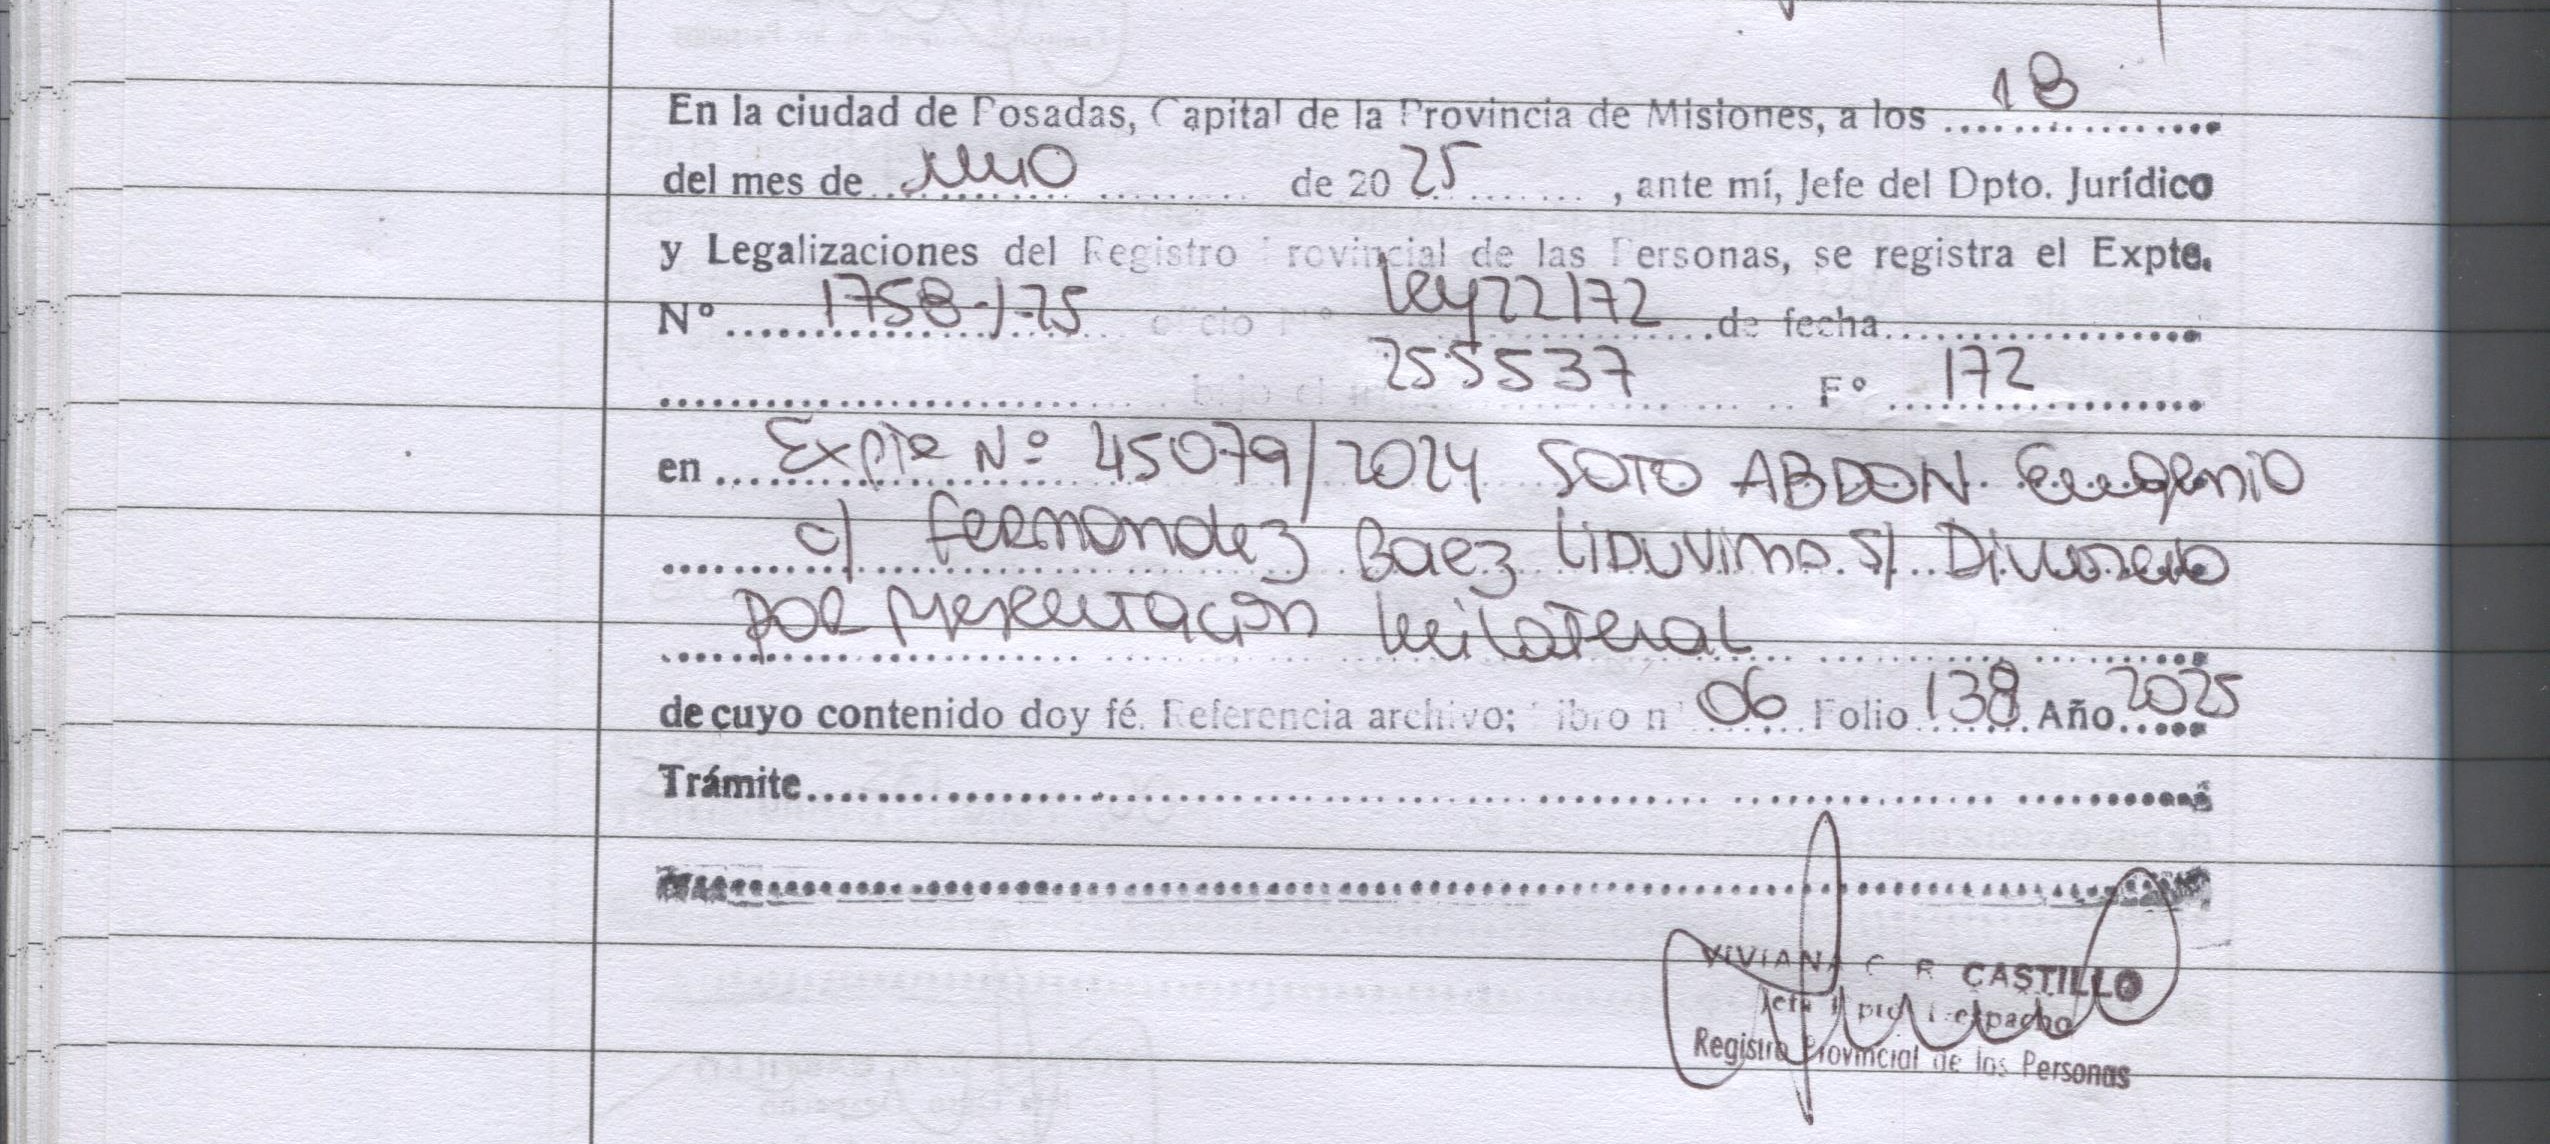 En la ciudad de Posadas, Capital de la Provincia de Misiones, a los 18
del mes de de 2025, ante mí, Jefe del Dpto. Jurídico
y Legalizaciones del Registro Provincial de las Personas, se registra el Expte.
Nº 1758-J-25 oficio Nº Ley 22172 de fecha
bajo el nº 255537 Fº 172
en Expte Nº 45079/2024 SOTO ABDON Eugenio
c/ Fernandez Baez Liduvina s/ Divorcio
por presentación unilateral
de cuyo contenido doy fé. Referencia archivo; Libro nº 06 Folio 138 Año 2025
Trámite
VIVIANA C. R. CASTILLO
Jefa Dpto. Despacho
Registro Provincial de las Personas